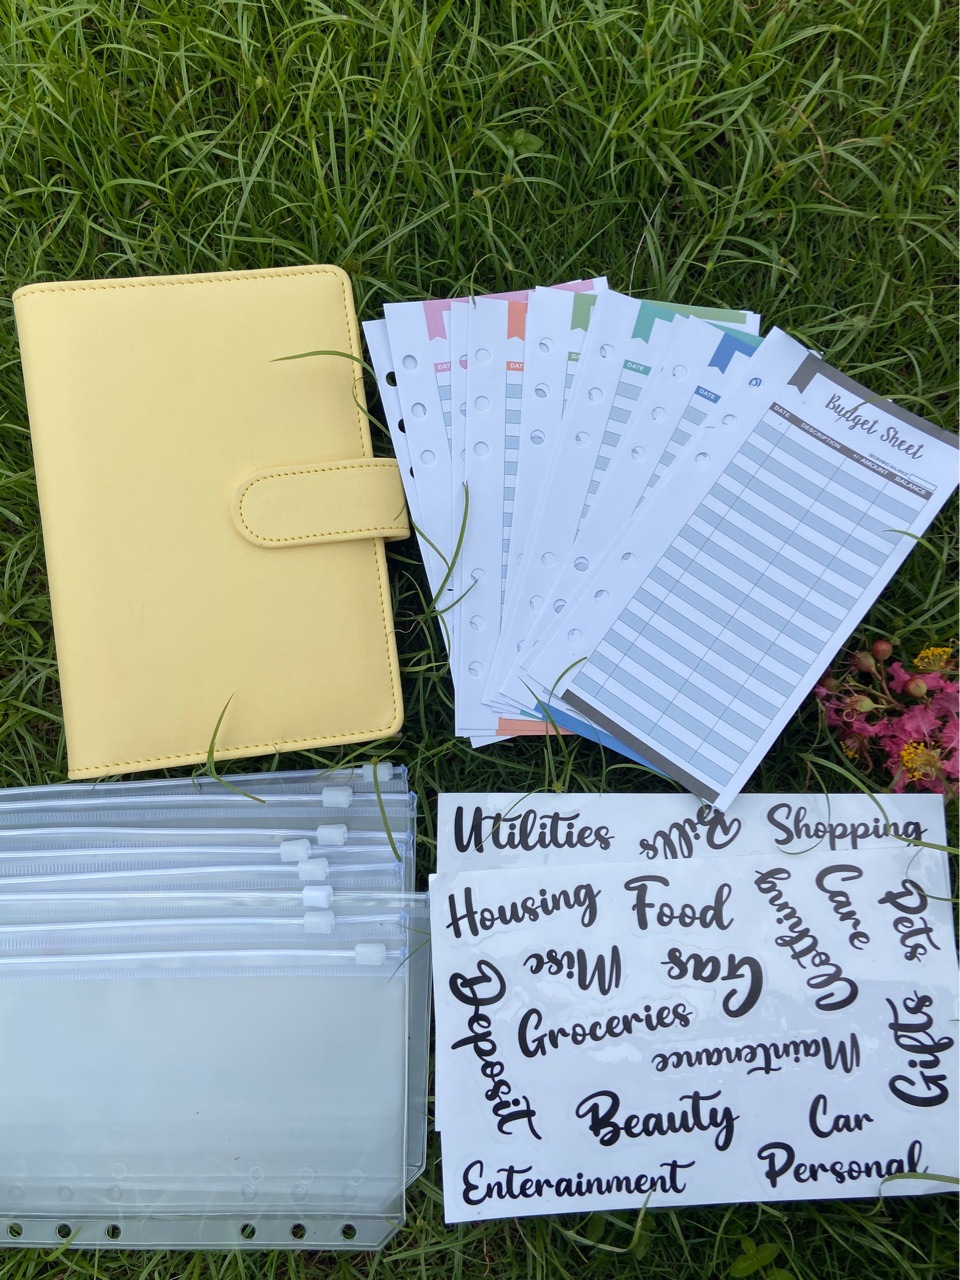 DATE
DATE
DATE
DATE
DATE
Budget Sheet
DATE DESCRIPTION +/- AMOUNT BALANCE
Utilities Bills Shopping
Housing Food Clothing Care Pets
Misc Gas
Deposit Groceries Gifts
Maintenance
Beauty Car
Enterainment Personal